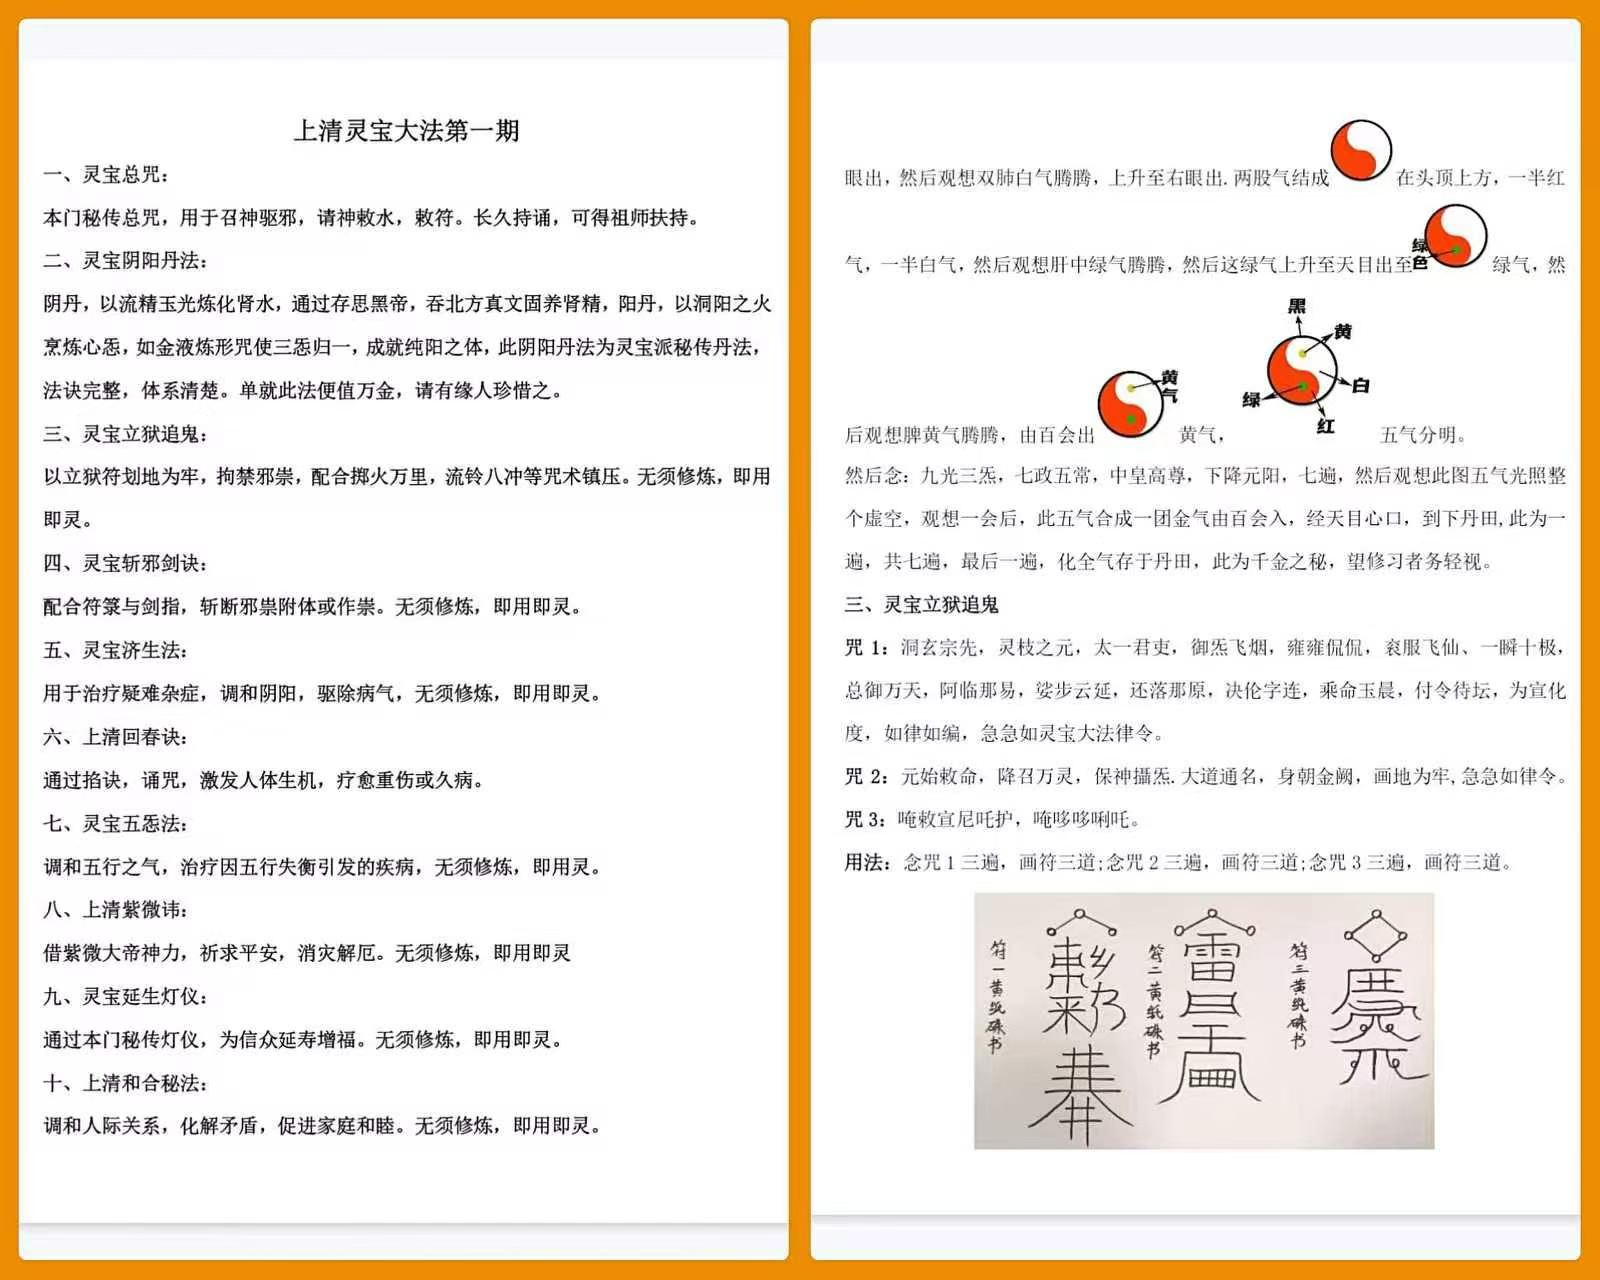 上清灵宝大法第一期
一、灵宝总咒：
本门秘传总咒，用于召神驱邪，请神敕水，敕符。长久持诵，可得祖师扶持。
二、灵宝阴阳丹法：
阴丹，以流精玉光炼化肾水，通过存思黑帝，吞北方真文固养肾精，阳丹，以洞阳之火
烹炼心炁，如金液炼形咒使三炁归一，成就纯阳之体，此阴阳丹法为灵宝派秘传丹法，
法诀完整，体系清楚。单就此法便值万金，请有缘人珍惜之。
三、灵宝立狱追鬼：
以立狱符划地为牢，拘禁邪祟，配合掷火万里，流铃八冲等咒术镇压。无须修炼，即用
即灵。
四、灵宝斩邪剑诀：
配合符箓与剑指，斩断邪祟附体或作祟。无须修炼，即用即灵。
五、灵宝济生法：
用于治疗疑难杂症，调和阴阳，驱除病气，无须修炼，即用即灵。
六、上清回春诀：
通过掐诀，诵咒，激发人体生机，疗愈重伤或久病。
七、灵宝五炁法：
调和五行之气，治疗因五行失衡引发的疾病，无须修炼，即用灵。
八、上清紫微讳：
借紫微大帝神力，祈求平安，消灾解厄。无须修炼，即用即灵
九、灵宝延生灯仪：
通过本门秘传灯仪，为信众延寿增福。无须修炼，即用即灵。
十、上清和合秘法：
调和人际关系，化解矛盾，促进家庭和睦。无须修炼，即用即灵。
眼出，然后观想双肺白气腾腾，上升至右眼出.两股气结成 在头顶上方，一半红
气，一半白气，然后观想肝中绿气腾腾，然后这绿气上升至天目出至 绿色 绿气，然
黑
黄
白
红
绿
后观想脾黄气腾腾，由百会出 黄气 黄气， 五气分明。
然后念：九光三炁，七政五常，中皇高尊，下降元阳，七遍，然后观想此图五气光照整
个虚空，观想一会后，此五气合成一团金气由百会入，经天目心口，到下丹田,此为一
遍，共七遍，最后一遍，化全气存于丹田，此为千金之秘，望修习者务轻视。
三、灵宝立狱追鬼
咒 1：洞玄宗先，灵枝之元，太一君吏，御炁飞烟，雍雍侃侃，衮服飞仙、一瞬十极，
总御万天，阿临那易，娑步云延，还落那原，决伦字连，乘命玉晨，付令待坛，为宣化
度，如律如编，急急如灵宝大法律令。
咒 2：元始敕命，降召万灵，保神攝炁.大道通名，身朝金阙，画地为牢,急急如律令。
咒 3：唵敕宣尼吒护，唵哆哆唎吒。
用法：念咒 1 三遍，画符三道;念咒 2 三遍，画符三道;念咒 3 三遍，画符三道。
符一黄纸硃书
符二黄纸硃书
符三黄纸硃书